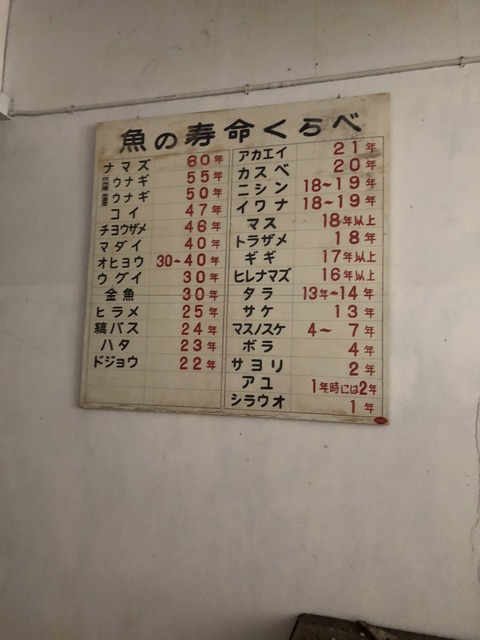 魚の寿命くらべ
ナマズ 60年
ウナギ 55年
ウナギ 50年
コイ 47年
チヨウザメ 46年
マダイ 40年
オヒョウ 30~40年
ウグイ 30年
金魚 30年
ヒラメ 25年
縞バス 24年
ハタ 23年
ドジョウ 22年
アカエイ 21年
カスベ 20年
ニシン 18~19年
イワナ 18~19年
マス 18年以上
トラザメ 18年
ギギ 17年以上
ヒレナマズ 16年以上
タラ 13年~14年
サケ 13年
マスノスケ 4~7年
ボラ 4年
サヨリ 2年
アユ 1年時には2年
シラウオ 1年